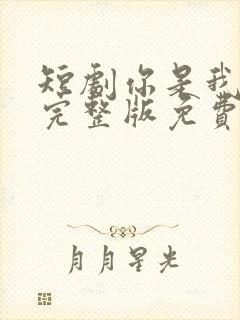 短劇你是我
完整版免費
月月星光